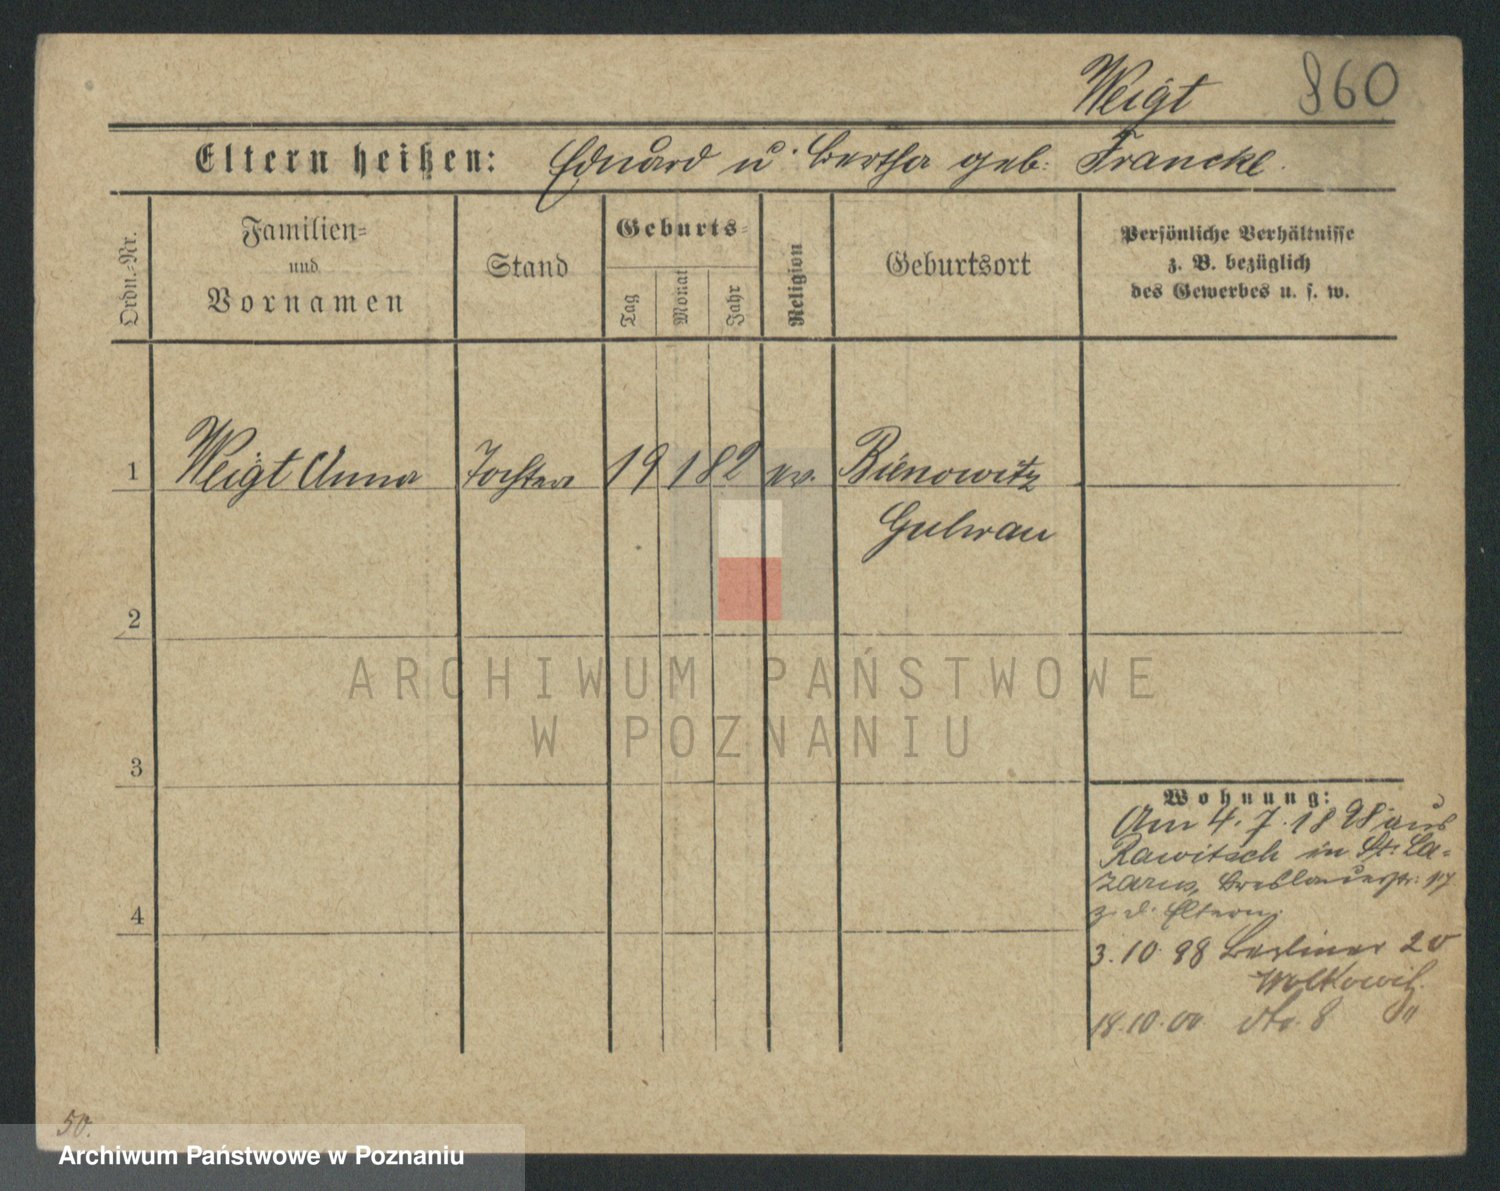 Weigt 860
Eltern heißen: Eduard u. Bertha geb. Francke.
Ordn.-Nr.
Familien-
und
Vornamen
Stand
Geburts-
Tag
Monat
Jahr
Religion
Geburtsort
Persönliche Verhältnisse
z. B. bezüglich
des Gewerbes u. s. w.
1 Weigt Anna Tochter 19 1 82 ev. Bienowitz
Guhrau
2
3
4
Wohnung:
Am 4. 7. 1898 aus
Rawitsch in St. La-
zarus, Breslauerstr. 17
z. d. Eltern.
3. 10. 98 Berliner 20
Wolkowitz
18. 10. 00 dto. 8 "
50.
ARCHIWUM PAŃSTWOWE
W POZNANIU
Archiwum Państwowe w Poznaniu